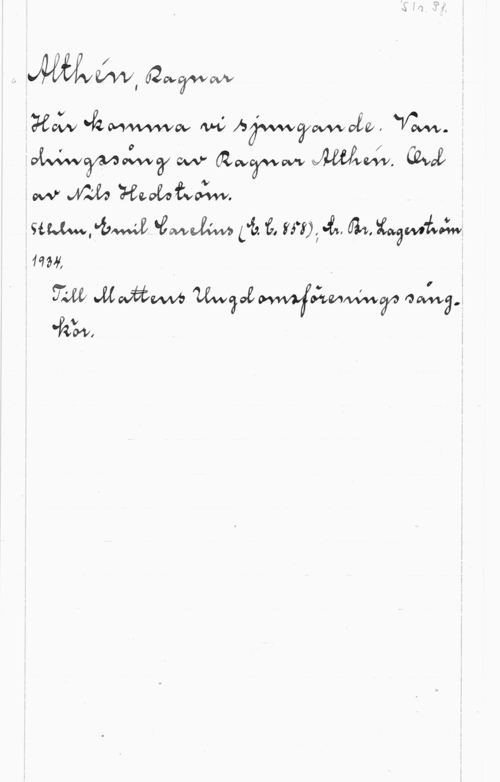 Althén, Ragnar
Här komma vi sjungande. Van-
dringssång av Ragnar Althén. Ord
av Nils Hedström.
Sthlm, Emil Carelius (E. C. 858); tr. Br. Lagerström
1934.
Till Mattens Ungdomsförenings sång-
kör.